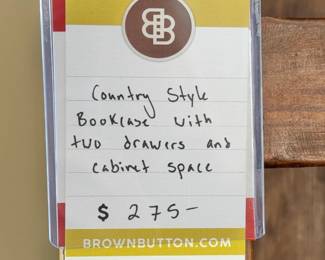 BB
Country Style
Bookcase with
two drawers and
cabinet space
$ 275-
BROWNBUTTON.COM